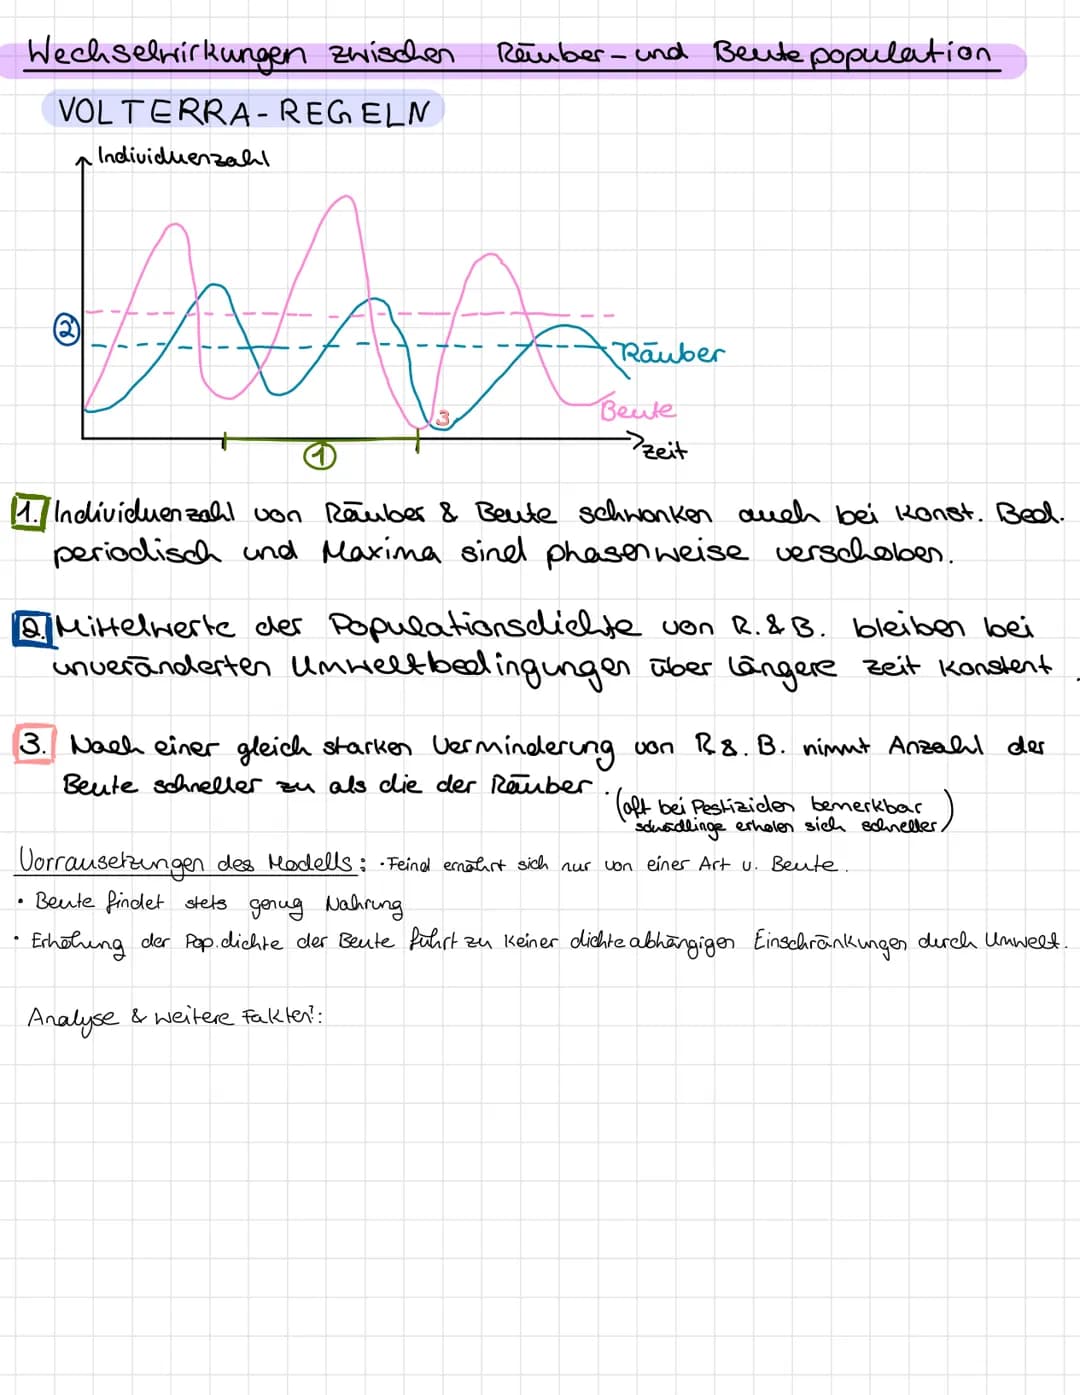 Wechselwirkungen zwischen Räuber- und Beutepopulation
VOLTERRA-REGELN
Individuenzahl
2
Räuber
Beute
3
zeit
1
1. Individuenzahl von Räuber & Beute schwanken auch bei konst. Bed.
periodisch und Maxima sind phasenweise verschoben.
2. Mittelwerte der Populationsdichte von R. & B. bleiben bei
unveränderten Umweltbedingungen über längere zeit konstant.
3. Nach einer gleich starken Verminderung von R. & B. nimmt Anzahl der
Beute schneller zu als die der Räuber.
(oft bei Pestiziden bemerkbar
schädlinge erholen sich schneller)
Vorrausetzungen des Modells: · Feind ernährt sich nur von einer Art u. Beute.
· Beute findet stets genug Nahrung
· Erhöhung der Pop.dichte der Beute führt zu keiner dichteabhängigen Einschränkungen durch Umwelt.
Analyse & weitere Fakten: